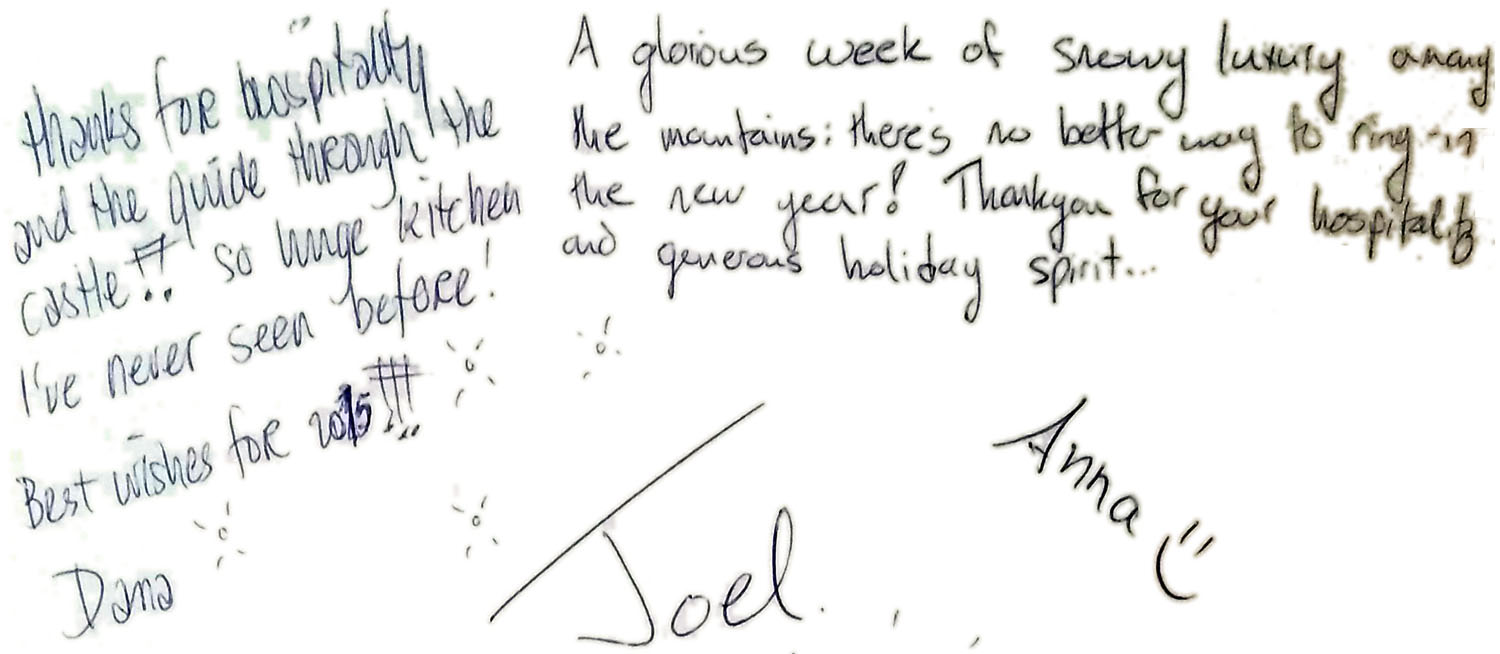 thanks for hospitality
and the guide through the
castle!!! so huge kitchen
I've never seen before!
Best wishes for 2015!!!
Dana
A glorious week of snowy luxury among
the mountains: there's no better way to ring in
the new year! Thankyou for your hospitality
and generous holiday spirit...
Joel.
Anna